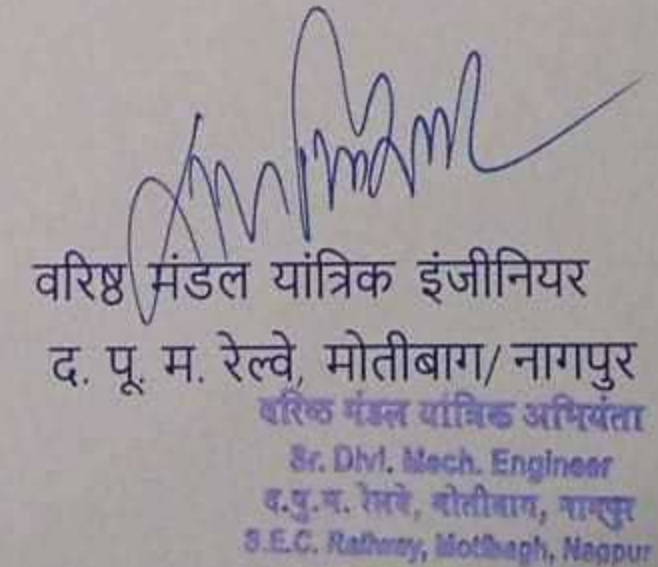 वरिष्ठ मंडल यांत्रिक इंजीनियर
द. पू. म. रेल्वे, मोतीबाग/ नागपुर
वरिष्ठ मंडल यांत्रिक अभियंता
Sr. Divl. Mech. Engineer
द.पु.म. रेलवे, मोतीबाग, नागपुर
S.E.C. Railway, Motibagh, Nagpur